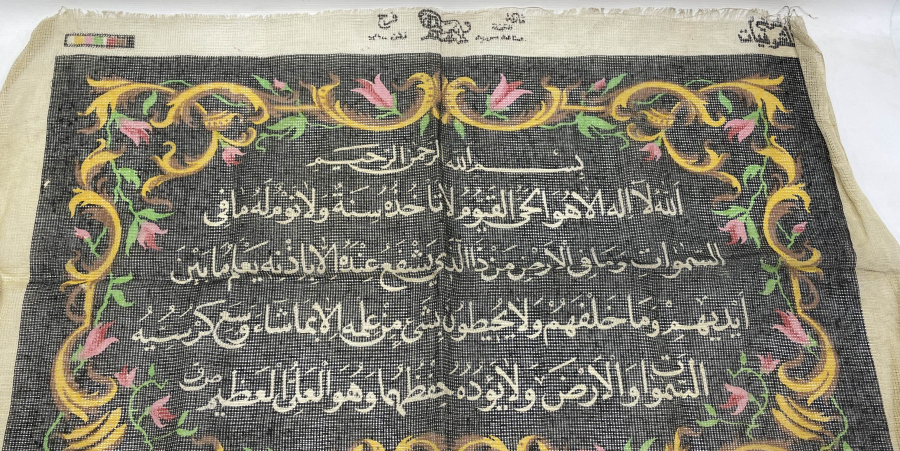 الشرقيات
بسم الله الرحمن الرحيم
الله لا اله الا هو الحي القيوم لا تاخذه سنة ولا نوم له ما في
السموات وما في الارض من ذا الذي يشفع عنده الا باذنه يعلم ما بين
ايديهم وما خلفهم ولا يحيطون بشئ من علمه الا بما شاء وسع كرسيه
السموات والارض ولا يؤده حفظهما وهو العلي العظيم